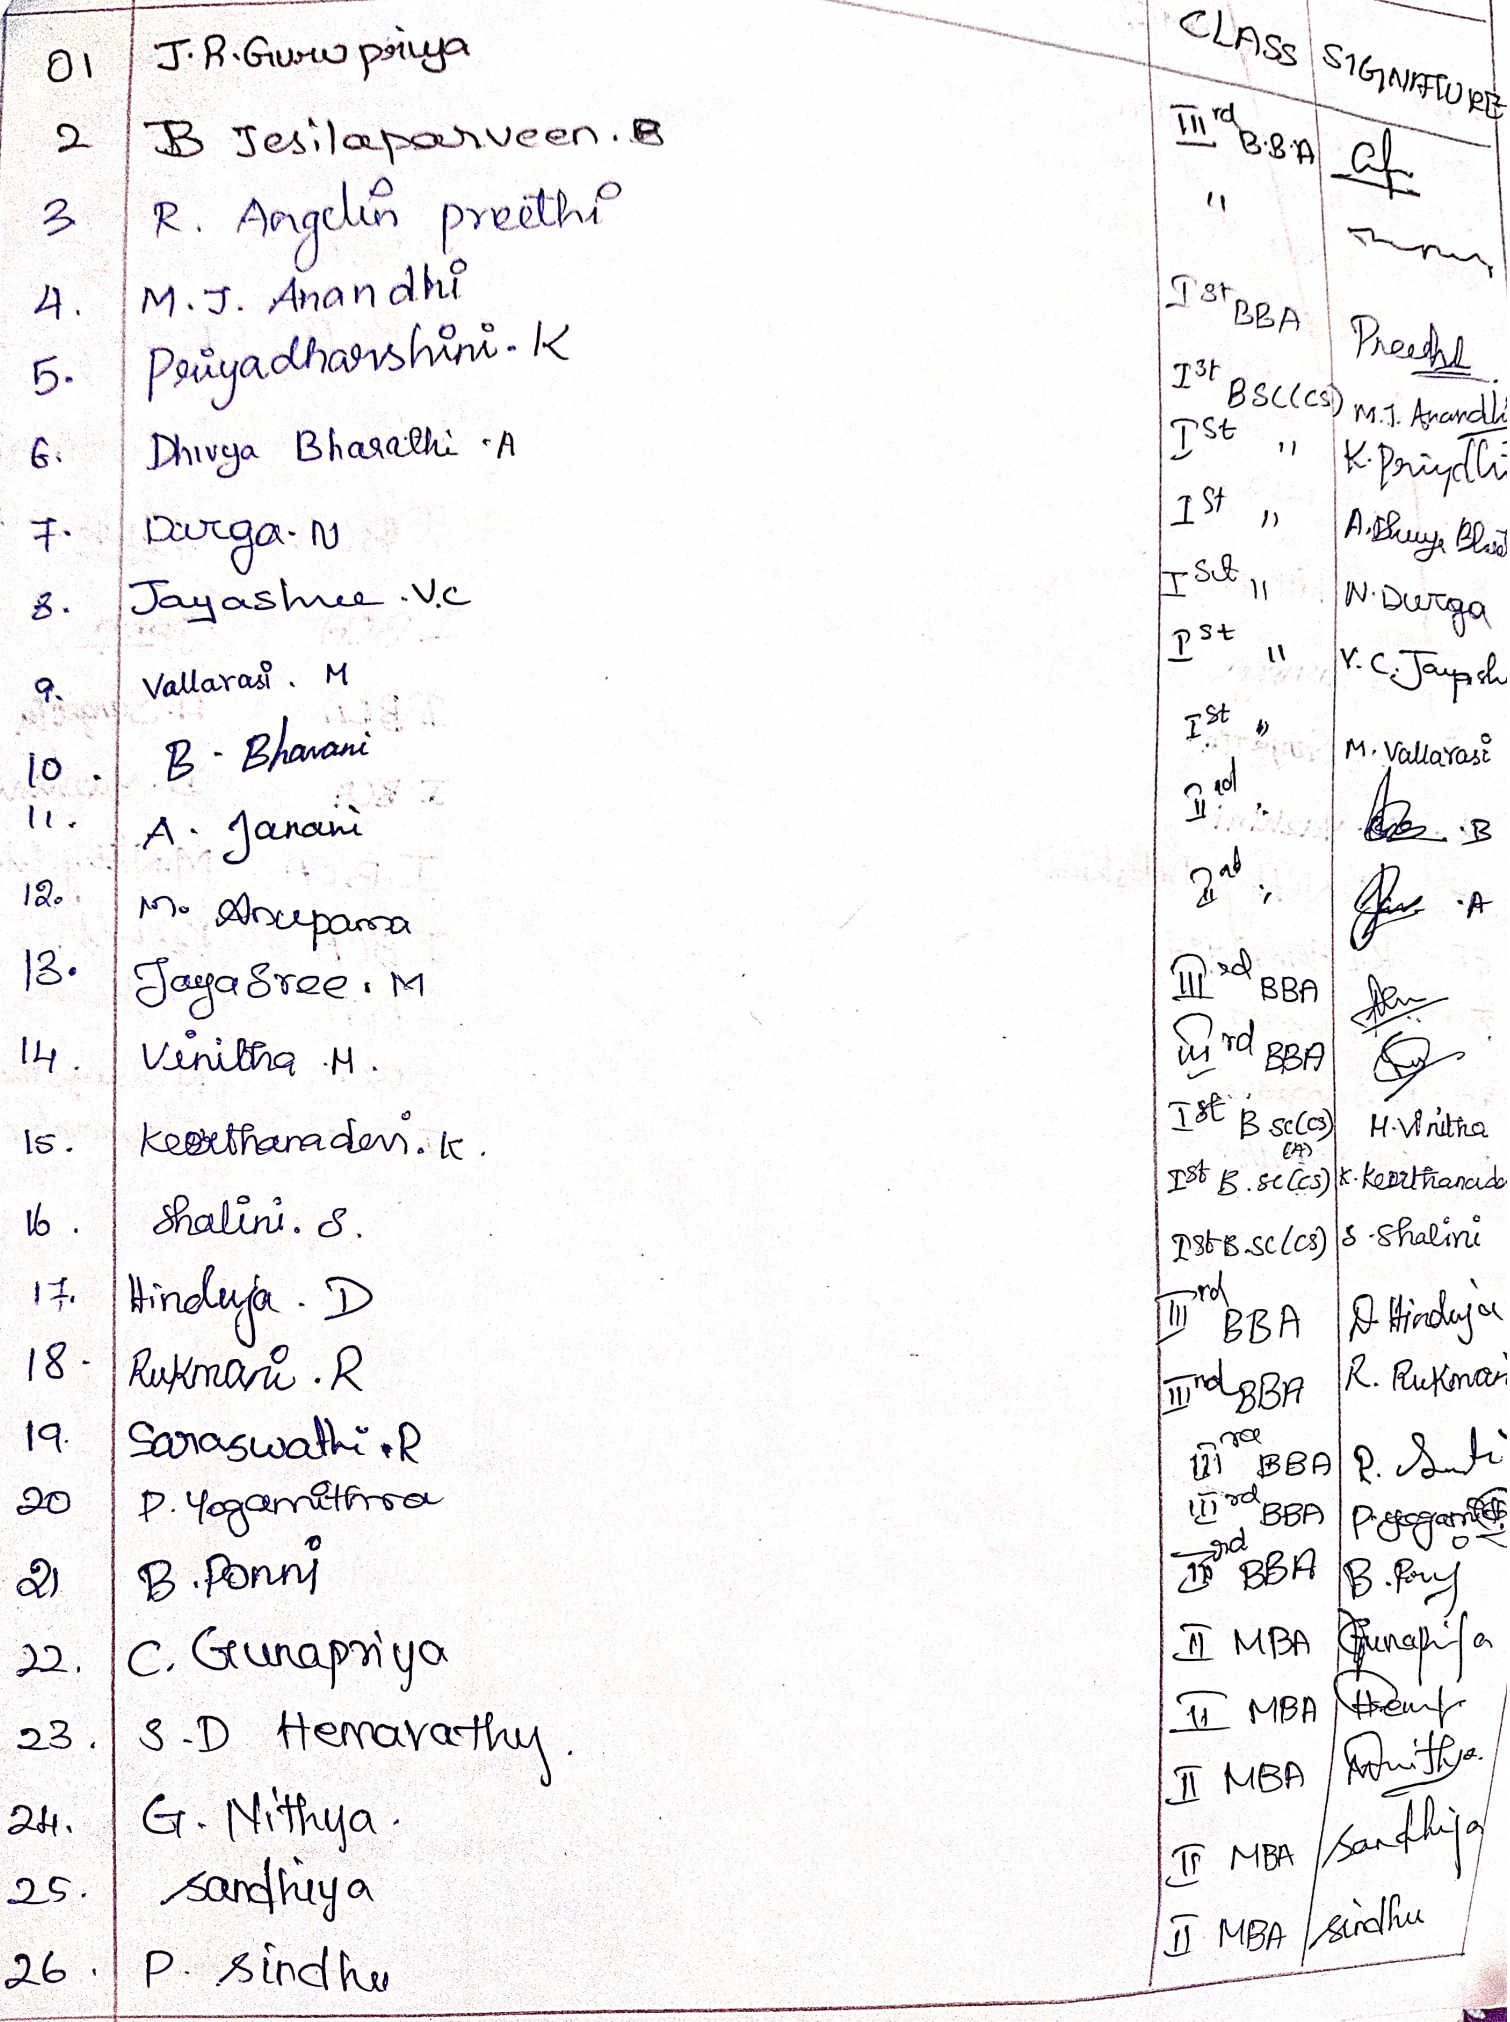 CLASS SIGNATURE
01 J.R.Gurupriya IIIrd B.B.A
2 B Jesilaparveen.B "
3 R. Angelin preethi Ist BBA Preethi
4. M.J. Anandhi Ist BSC(CS) M.J. Anandhi
5. Priyadharshini.K Ist " K.Priydh
6. Dhivya Bharathi.A Ist "
7. Durga.N Ist " N.Durga
8. Jayashree.V.C Ist " V.C.Jayash
9. Vallarasi. M Ist " M.Vallarasi
10. B. Bhavani IInd " .B
11. A. Janani IInd " .A
12. M. Anupama IIIrd BBA
13. JayaSree.M IIIrd BBA
14. Vinitha.H. Ist B sc(cs) (A) H.Vinitha
15. Keerthanadevi.K. Ist B.sc(cs) K.Keerthanade
16. Shalini.S. Ist B.sc(cs) S.Shalini
17. Hinduja.D IIIrd BBA D Hinduja
18. Rukmani.R IIIrd BBA R. Rukman
19. Saraswathi.R IIIrd BBA
20 P.Yogamithra IIIrd BBA P.yogami
21 B.Ponni IIIrd BBA B.
22. C. Gunapriya II MBA Gunapriya
23. S.D Hemavathy. II MBA
24. G. Nithya. II MBA Nithya.
25. Sandhiya II MBA Sandhiya
26. P. Sindhu II MBA Sindhu